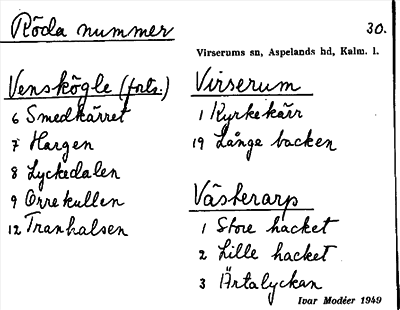 Röda nummer
30.
Virserums sn, Aspelands hd, Kalm. l.
Venskögle (forts.)
6 Smedkärret
7 Hargen
8 Lyckedalen
9 Orrekullen
12 Tranhalsen
Virserum
1 Kyrkekärr
19 Långe backen
Västerarp
1 Store hacket
2 Lille hacket
3 Ärtalyckan
Ivar Modéer 1949